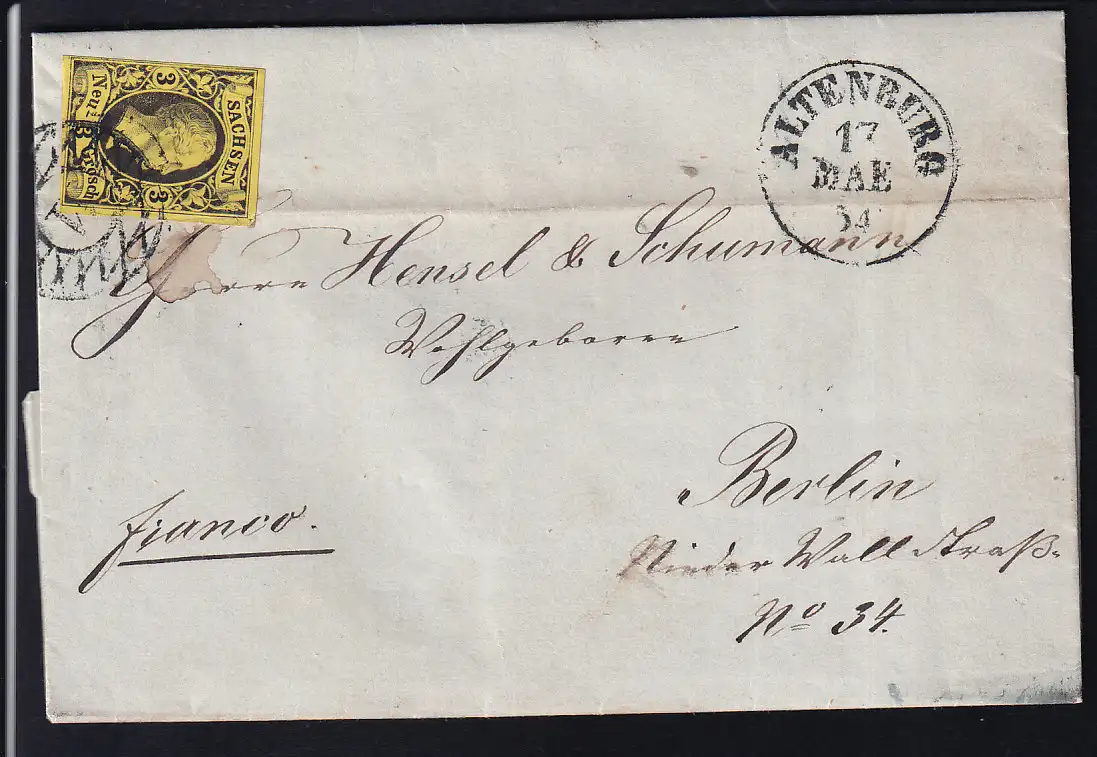 SACHSEN
3
3
Neu-
3
Grosch
ALTENBURG
17
MAE
54
Herrn Hensel & Schumann
Wohlgeboren
Berlin
franco.
Nieder Wall Straß.
No 34.